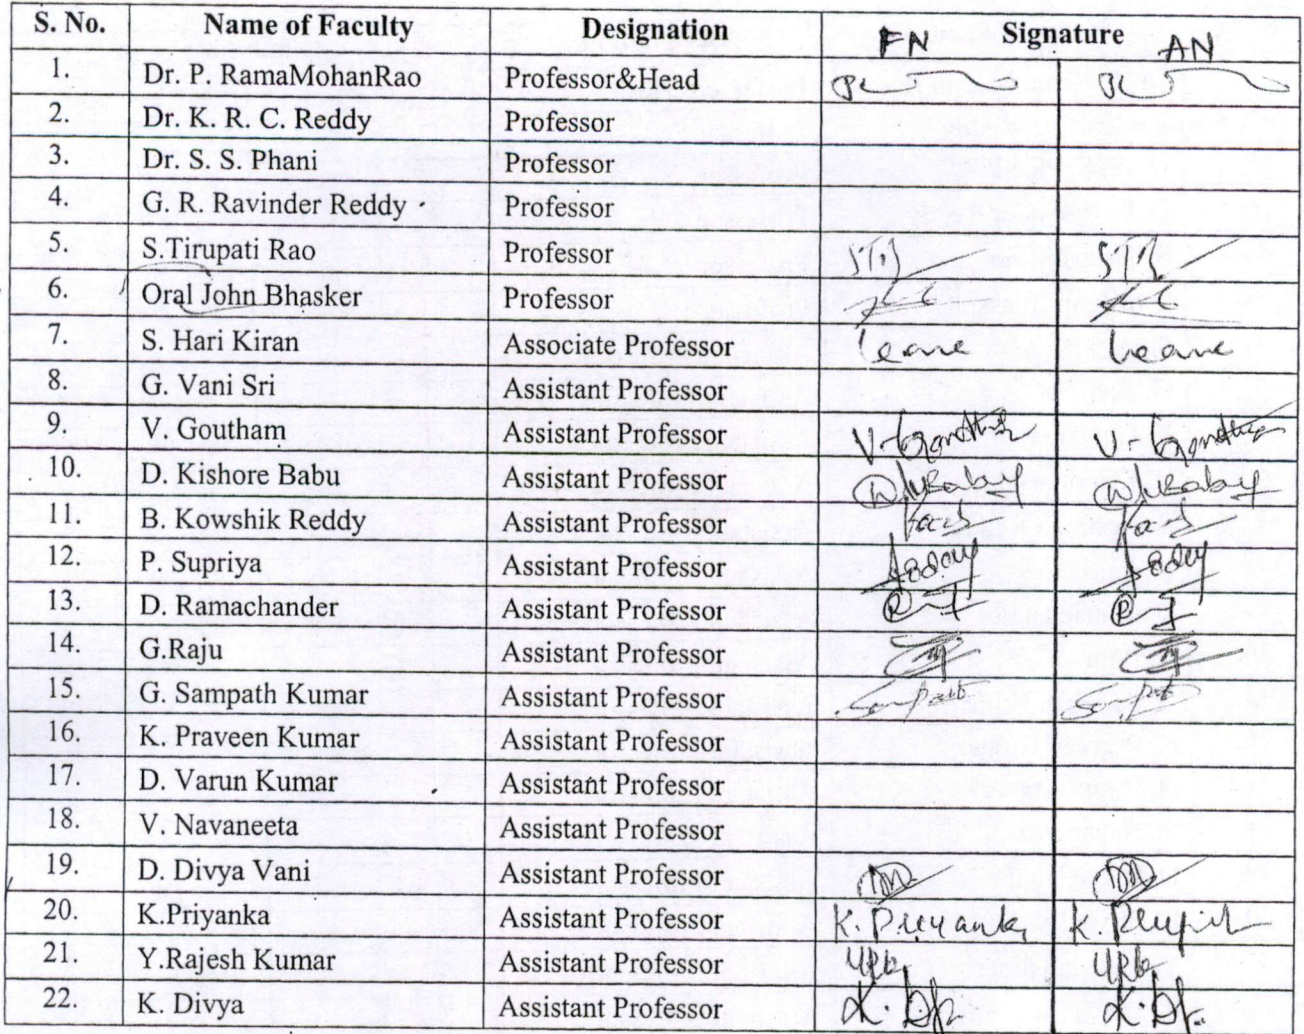 S. No. Name of Faculty Designation Signature
FN AN
1. Dr. P. RamaMohanRao Professor&Head
2. Dr. K. R. C. Reddy Professor
3. Dr. S. S. Phani Professor
4. G. R. Ravinder Reddy Professor
5. S.Tirupati Rao Professor
6. Oral John Bhasker Professor
7. S. Hari Kiran Associate Professor Leave Leave
8. G. Vani Sri Assistant Professor
9. V. Goutham Assistant Professor
10. D. Kishore Babu Assistant Professor
11. B. Kowshik Reddy Assistant Professor
12. P. Supriya Assistant Professor
13. D. Ramachander Assistant Professor
14. G.Raju Assistant Professor
15. G. Sampath Kumar Assistant Professor
16. K. Praveen Kumar Assistant Professor
17. D. Varun Kumar Assistant Professor
18. V. Navaneeta Assistant Professor
19. D. Divya Vani Assistant Professor
20. K.Priyanka Assistant Professor K. Priyanka
21. Y.Rajesh Kumar Assistant Professor
22. K. Divya Assistant Professor